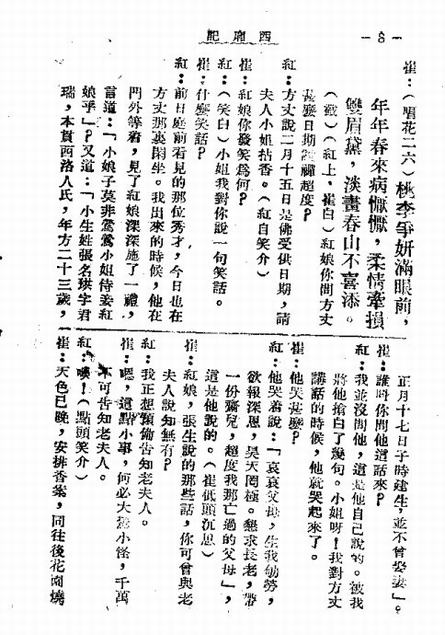 西廂記
— 8 —
崔：（唱花二六）桃李爭妍滿眼前，
年年春來病懨懨，柔情牽損
雙眉黛，淡畫春山不喜添。
（戲）（紅上，崔白）紅娘你問方丈
甚麼日期禪超度？
紅：方丈說二月十五日是佛受供日期，請
夫人小姐拈香。（紅自笑介）
崔：紅娘你發笑爲何？
紅：（笑白）小姐我對你說一句笑話。
崔：什麼笑話？
紅：前日庭前看見的那位秀才，今日也在
方丈那裏閑坐。我出來的時候，他在
門外等着，見了紅娘深深施了一禮，
言道：「小娘子莫非鶯鶯小姐侍妾紅
娘乎」？又道：「小生姓張名珙字君
瑞，本貫西洛人氏，年方二十三歲，
正月十七日子時建生，並不曾娶妻」。
崔：誰呌你問他這話來？
紅：我並沒問他，這是他自己說的。被我
將他搶白了幾句。小姐呀！我對方丈
講話的時候，他就哭起來了。
崔：他哭甚麼？
紅：他哭着說：「哀哀父母，生我劬勞，
欲報深恩，昊天罔極。懇求長老，帶
一份齋兒，超度我那亡過的父母」，
這是他說的。（崔低頭沉思）
崔：紅娘，張生說的那些話，你可曾與老
夫人說知無有？
紅：我正想預備告知老夫人。
崔：嗯，這點小事，何必大驚小怪，千萬
不可告知老夫人。
紅：噢！（點頭笑介）
崔：天色已晚，安排香案，同往後花園燒